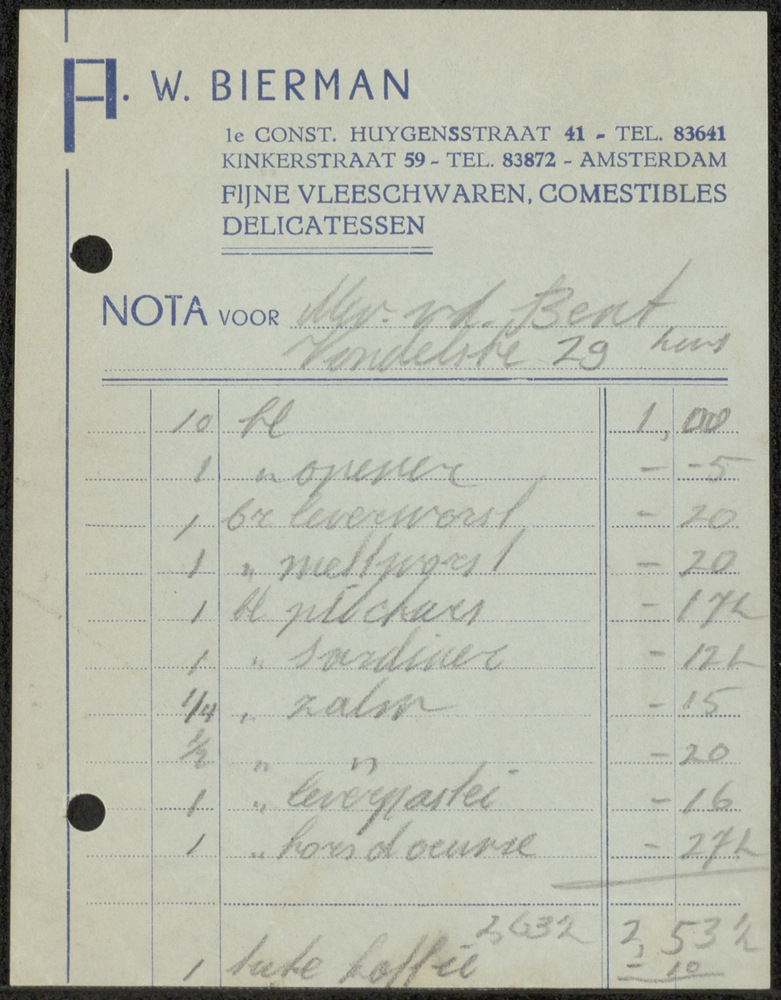 A. W. BIERMAN
1e CONST. HUYGENSSTRAAT 41 - TEL. 83641
KINKERSTRAAT 59 - TEL. 83872 - AMSTERDAM
FIJNE VLEESCHWAREN, COMESTIBLES
DELICATESSEN
NOTA VOOR Mw. vd. Bent
Vondelstr 29 huis
10 bl 1,00
1 " opener - -5
1 br leverworst - 20
1 " mettworst - 20
1 bl pilchars - 17½
1 " sardines - 12½
1/4 " zalm - 15
½ " " - 20
1 " leverpastei - 16
1 " hors d oeuvre - 27½
2,63½ 2,53½
1 tube koffie - 10